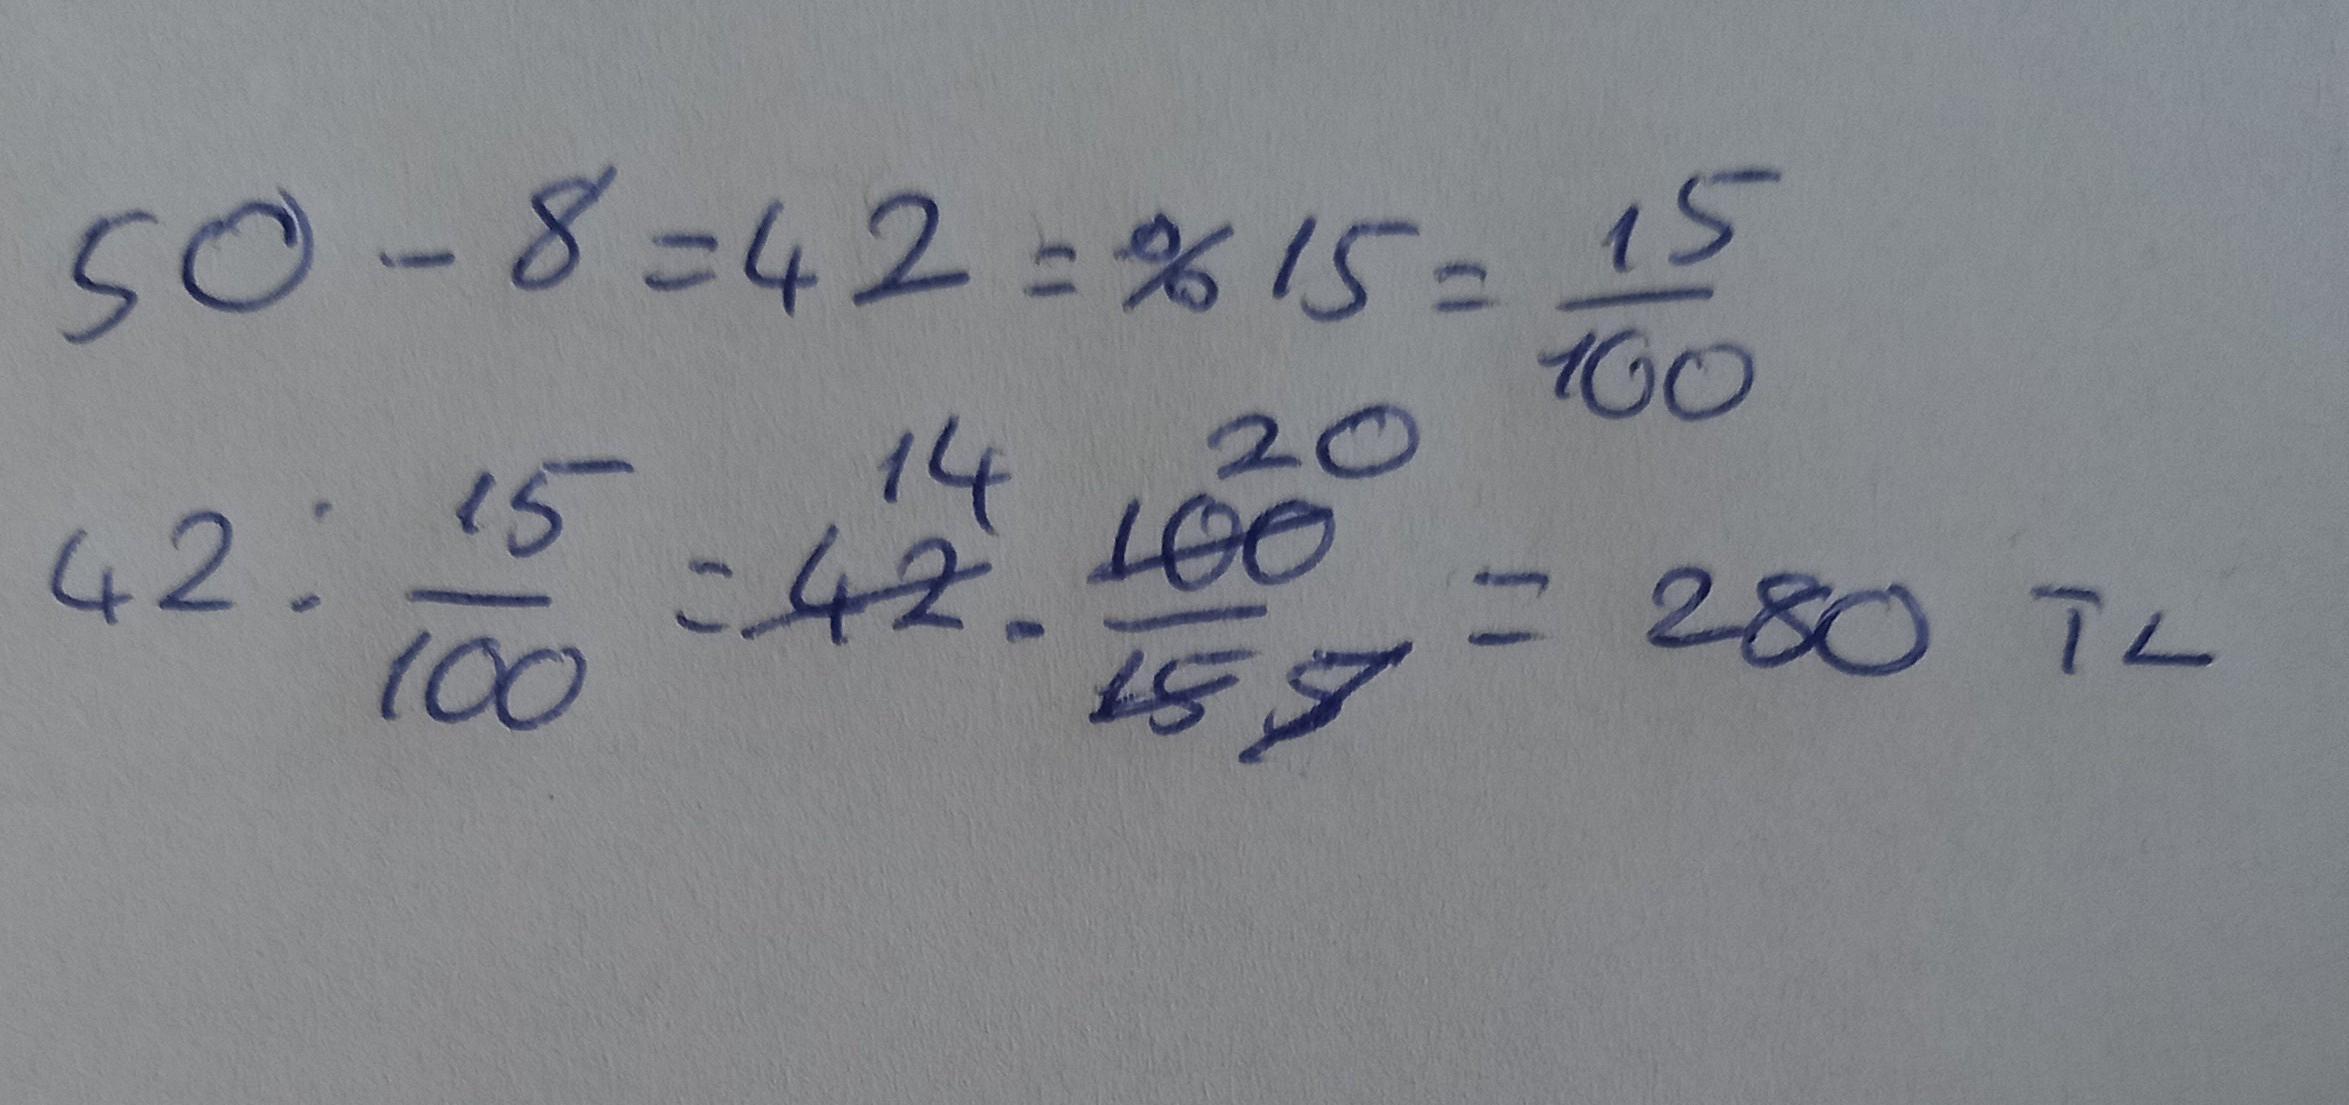 50 - 8 = 42 = %15 = 15/100
42 : 15/100 = 42 14 . 100 20 / 15 5 = 280 TL